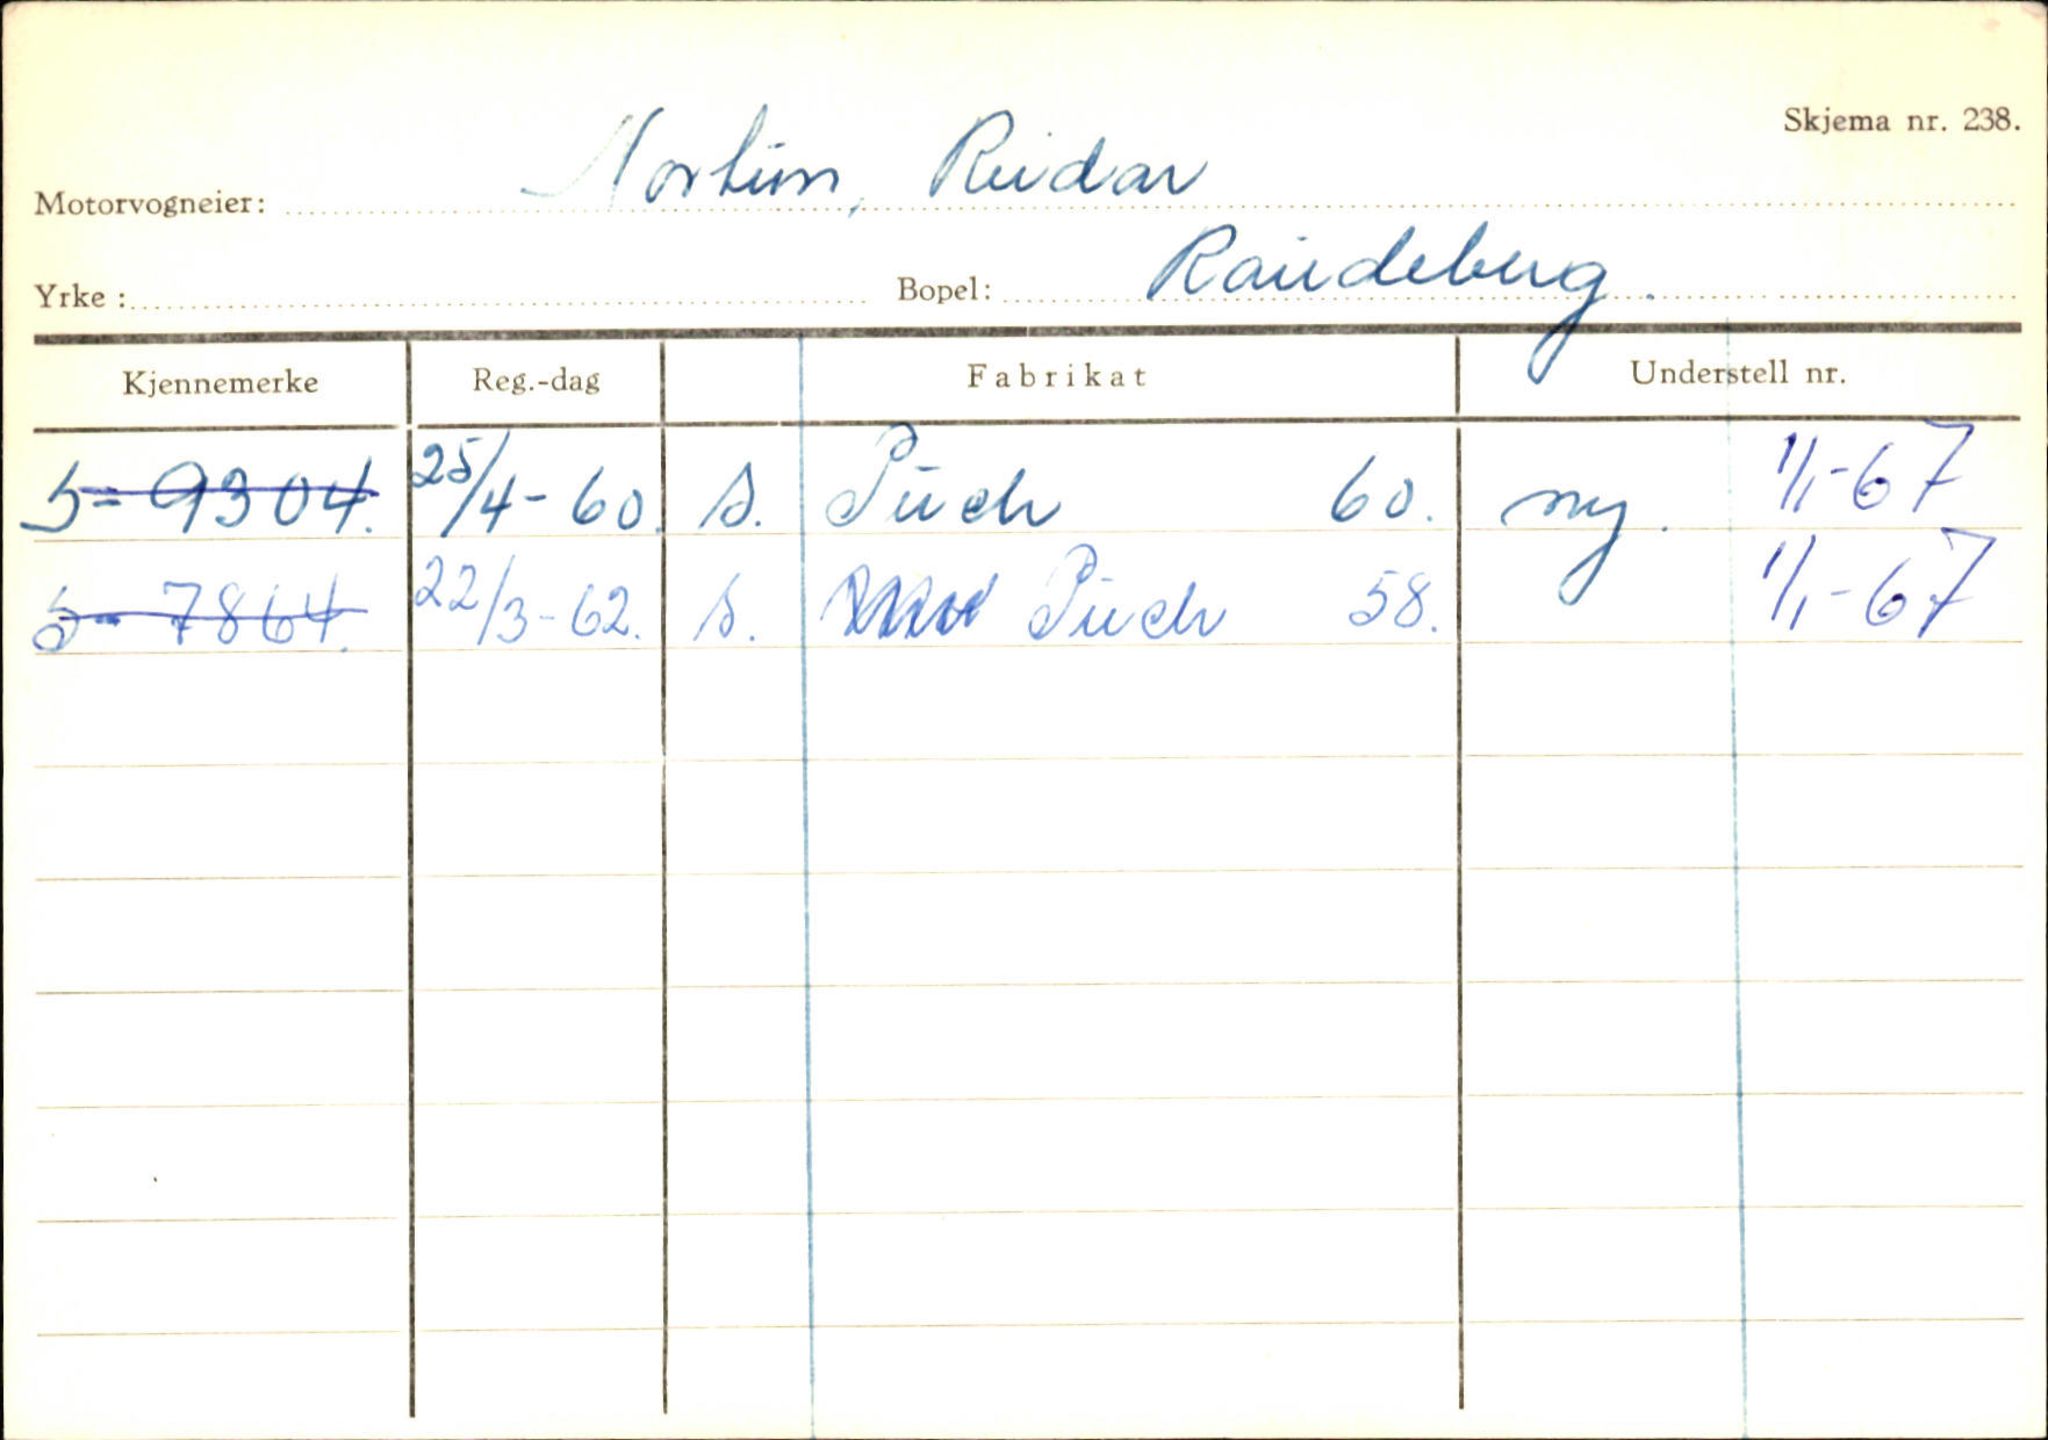 Skjema nr. 238.
Motorvogneier: Nortun, Reidar
Yrke: Bopel: Raudeberg.
Kjennemerke Reg.-dag Fabrikat Understell nr.
S-9304. 25/4-60. s. Puch 60. ny. 1/1-67
S-7864. 22/3-62. s. Puch 58. 1/1-67